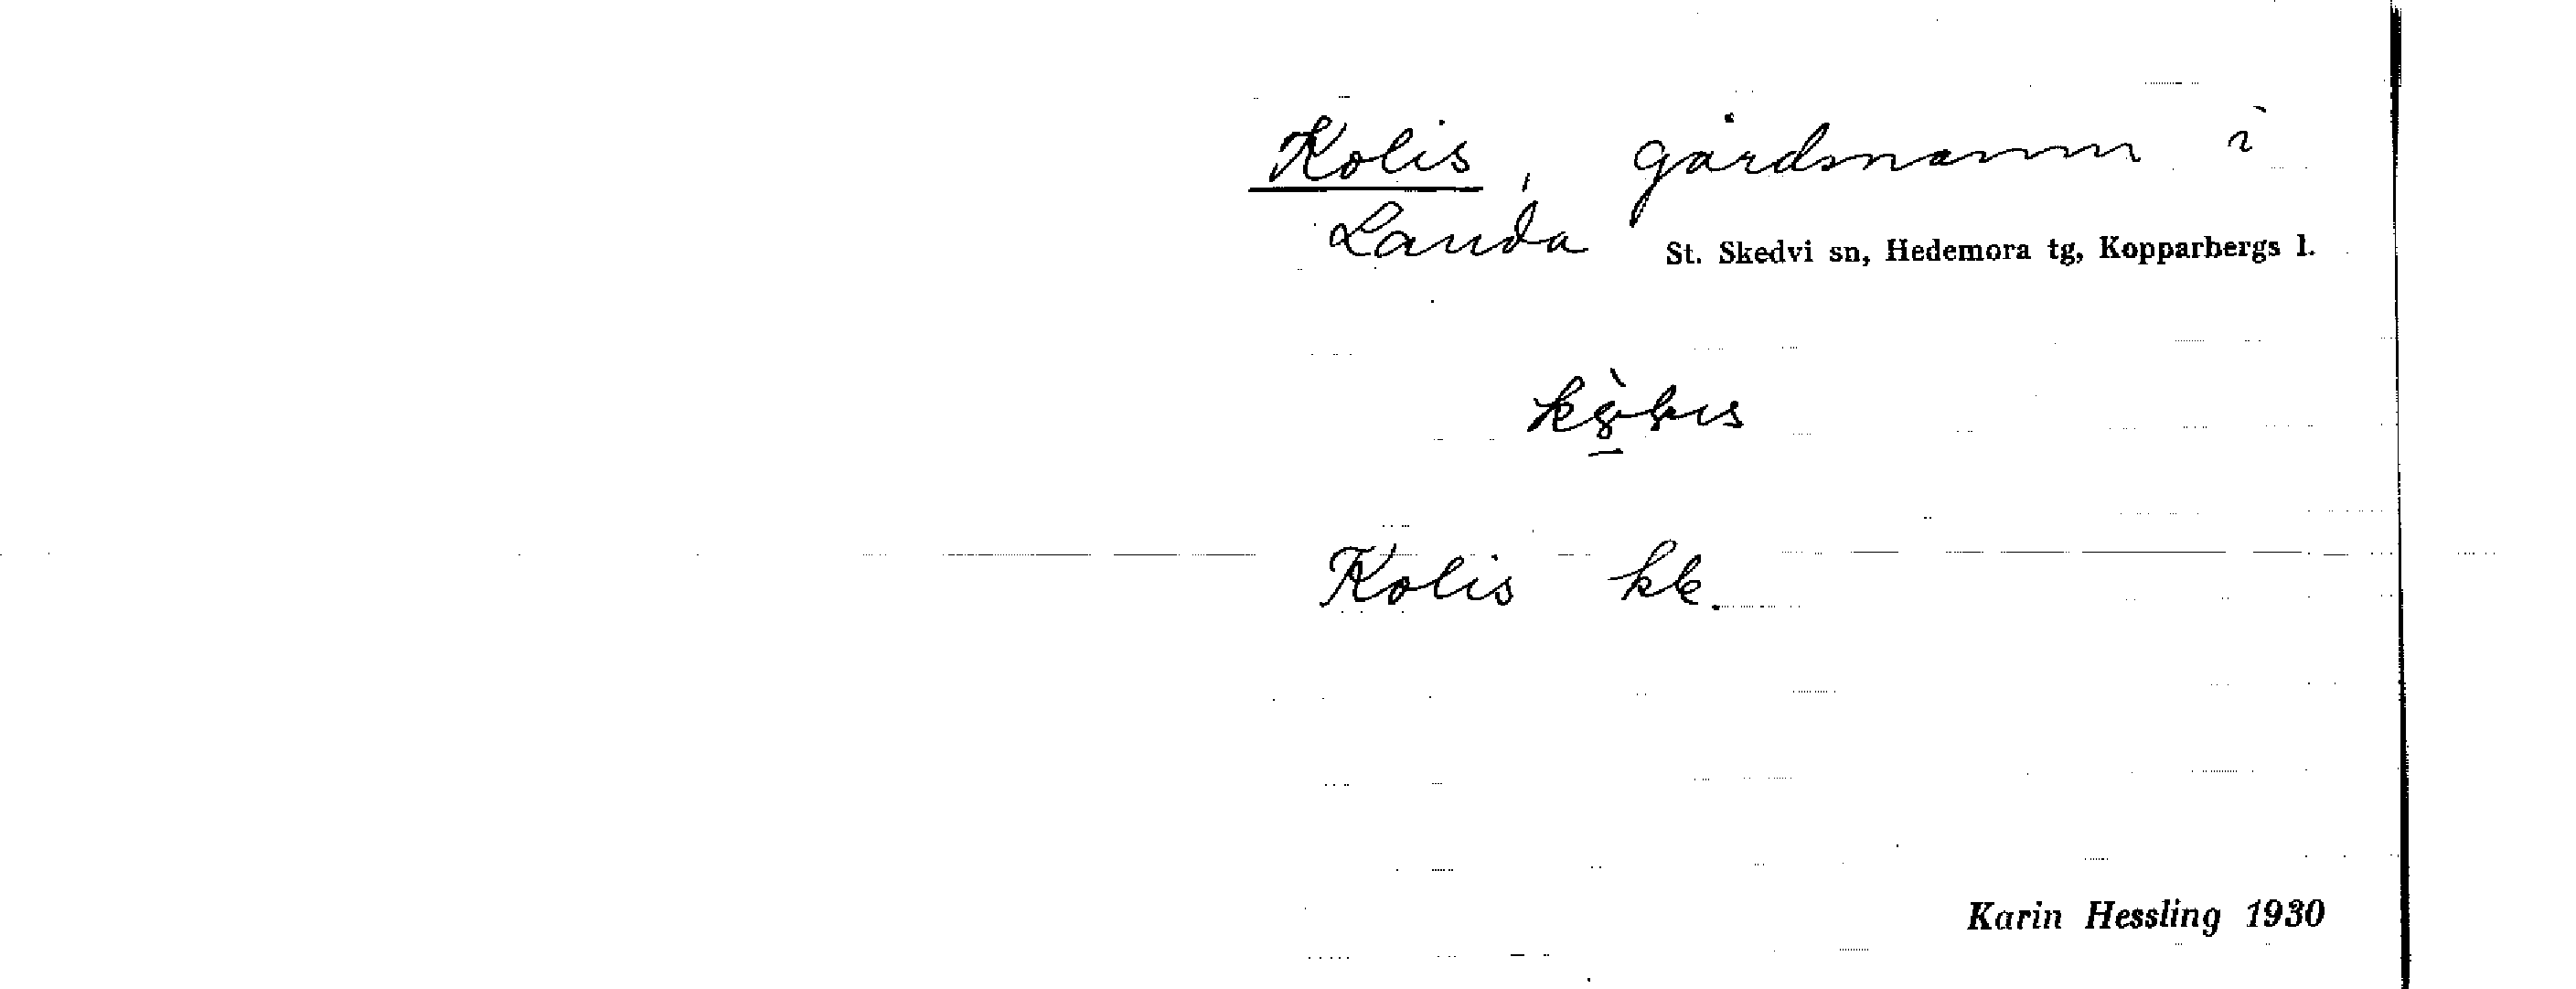 Kolis, gårdsnamn i
Landa St. Skedvi sn, Hedemora tg, Kopparbergs l.
Kolis kk.
Karin Hessling 1930